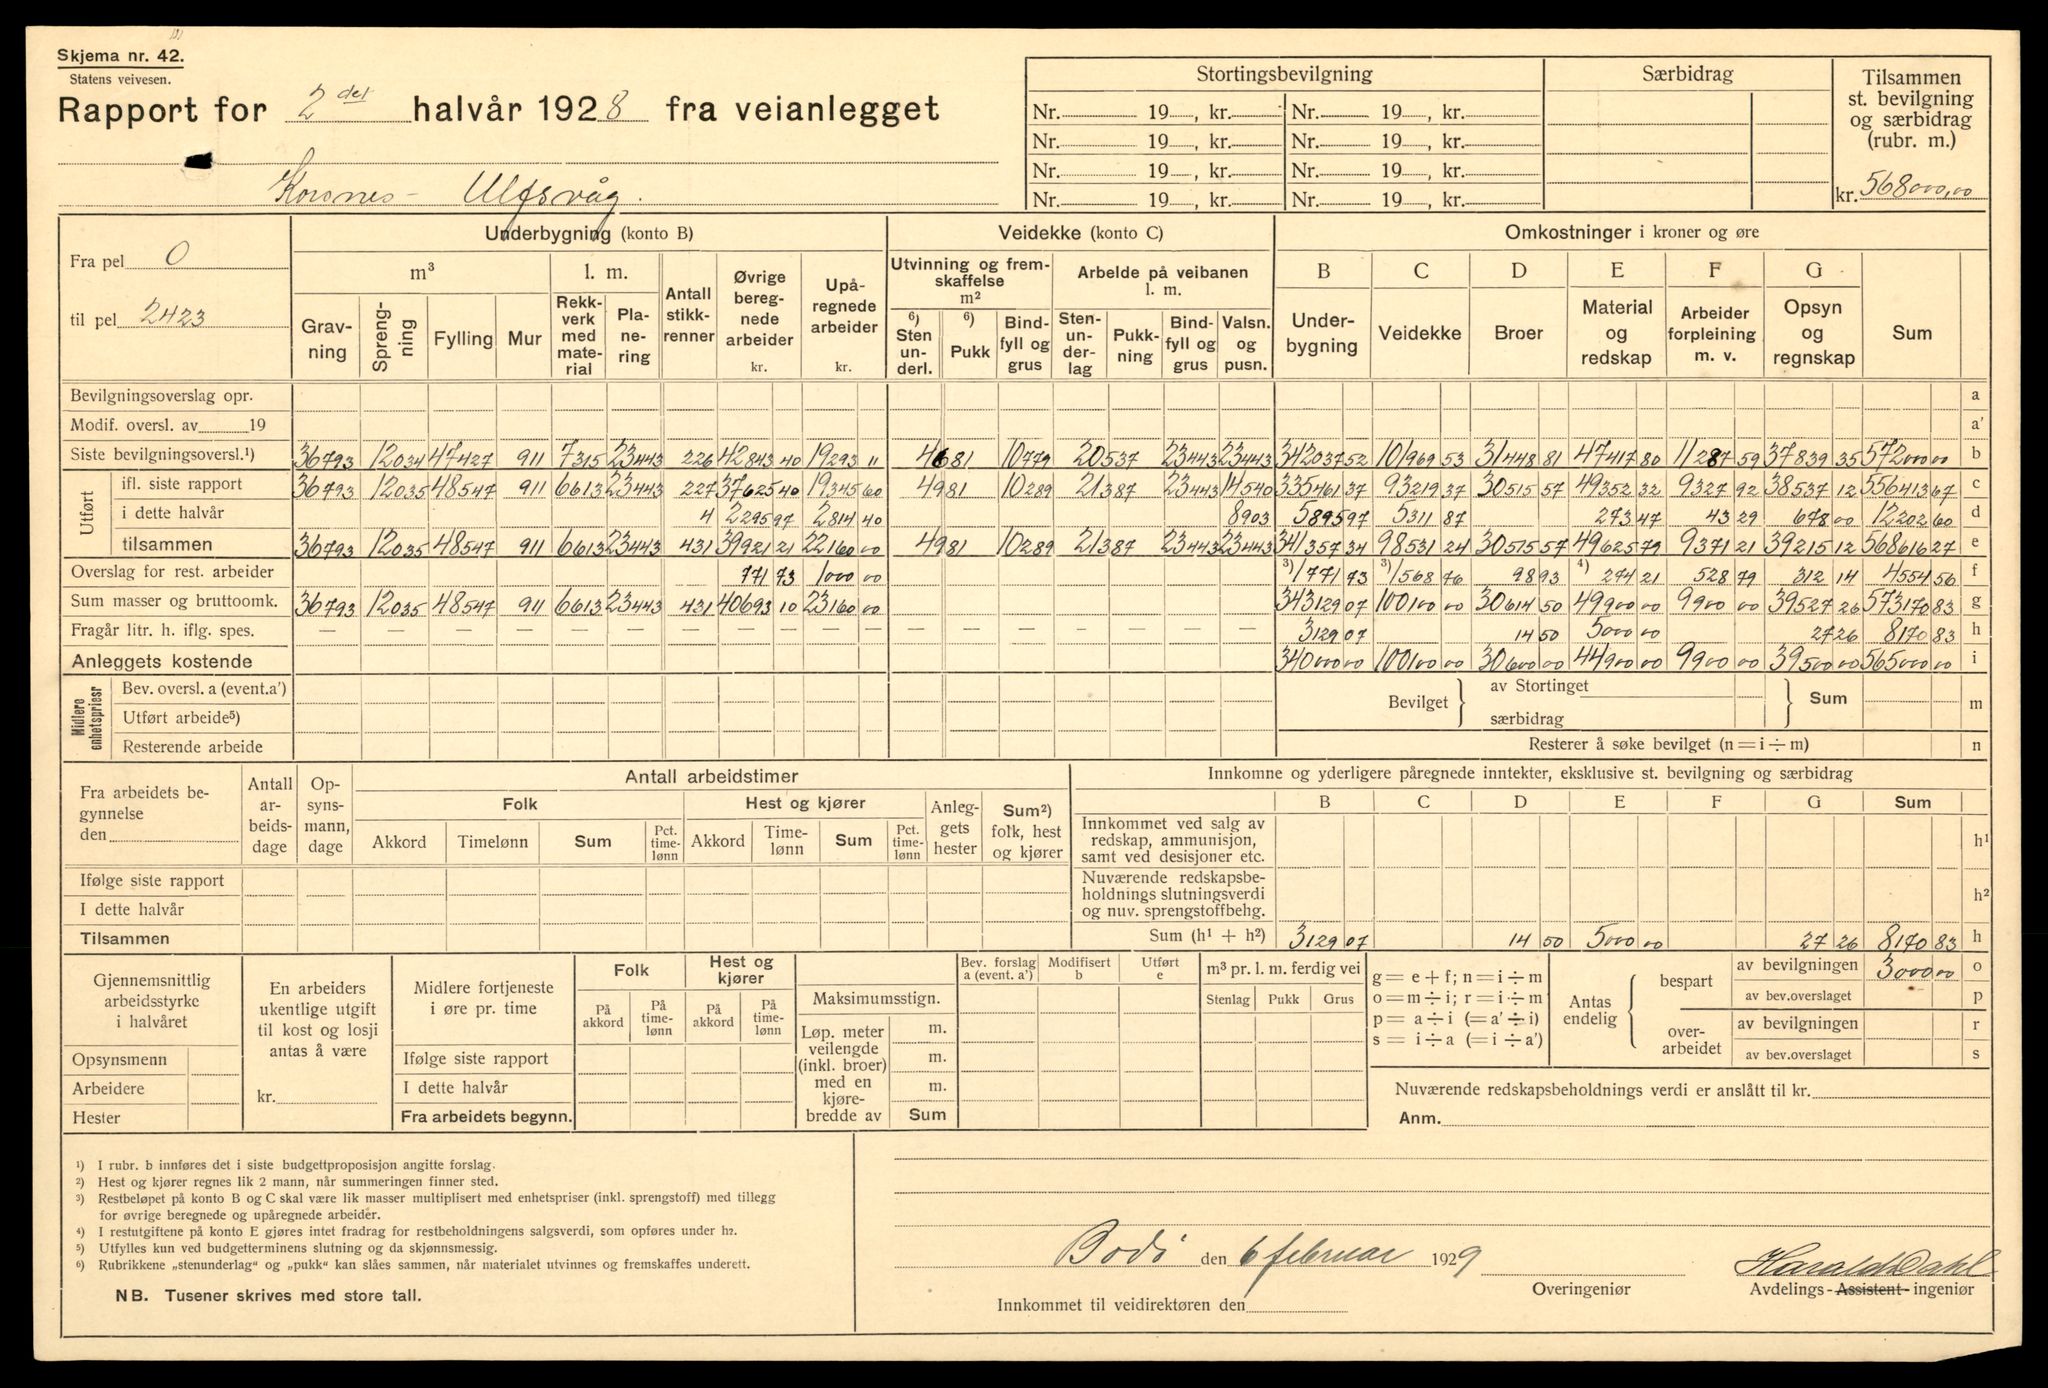 Skjema nr. 42.
Statens veivesen.
Rapport for 2det halvår 1928 fra veianlegget
Korsnes - Ulfsvåg.
Stortingsbevilgning Særbidrag Tilsammen st. bevilgning og særbidrag (rubr. m.)
Nr. 19 , kr. Nr. 19 , kr.
Nr. 19 , kr. Nr. 19 , kr.
Nr. 19 , kr. Nr. 19 , kr.
Nr. 19 , kr. Nr. 19 , kr. kr. 568000,00
Fra pel 0
til pel 2423
Underbygning (konto B) Veidekke (konto C) Omkostninger i kroner og øre
m³ l. m. Antall stikkrenner Øvrige beregnede arbeider kr. Upåregnede arbeider kr.
Utvinning og fremskaffelse m² Arbeide på veibanen l. m.
B C D E F G
Gravning Sprengning Fylling Mur Rekkverk med materiial Planering
6) Sten underl. 6) Pukk Bindfyll og grus Stenunderlag Pukkning Bindfyll og grus Valsn. og pusn.
Underbygning Veidekke Broer Material og redskap Arbeider forpleining m. v. Opsyn og regnskap Sum
Bevilgningsoverslag opr. a
Modif. oversl. av 19 a'
Siste bevilgningsoversl.¹) 36793 12034 47427 911 7315 23443 226 42843 40 19293 11 4681 10779 20537 23443 23443 342037 52 101969 53 31448 81 47417 80 11287 59 37839 35 572000 00 b
Utført
ifl. siste rapport 36793 12035 48547 911 6613 23443 227 37625 40 19345 60 4981 10289 21387 23443 14540 335461 37 93219 37 30515 57 49352 32 9327 92 38537 12 556413 67 c
i dette halvår 4 2295 97 2814 40 8903 5895 97 5311 87 273 47 43 29 678 00 12202 60 d
tilsammen 36793 12035 48547 911 6613 23443 431 39921 21 22160 00 4981 10289 21387 23443 23443 341357 34 98531 24 30515 57 49625 79 9371 21 39215 12 568616 27 e
Overslag for rest. arbeider 771 73 1000 00 3) 1771 73 3) 1568 76 98 93 4) 274 21 528 79 312 14 4554 56 f
Sum masser og bruttoomk. 36793 12035 48547 911 6613 23443 431 40693 10 23160 00 343129 07 100100 00 30614 50 49900 00 9900 00 39527 26 573170 83 g
Fragår litr. h. iflg. spes. — — — — — — — — — — — — — — — — 3129 07 14 50 5000 00 27 26 8170 83 h
Anleggets kostende 340000 00 100100 00 30600 00 44900 00 9900 00 39500 00 565000 00 i
Midlere enhetspriesr
Bev. oversl. a (event.a')
Utført arbeide⁵)
Resterende arbeide
Bevilget av Stortinget særbidrag Sum m
Resterer å søke bevilget (n = i ÷ m) n
Fra arbeidets begynnelse den
Antall arbeidsdage Opsynsmann, dage
Antall arbeidstimer
Folk Hest og kjører Anleggets hester Sum²) folk, hest og kjører
Akkord Timelønn Sum Pct. timelønn Akkord Timelønn Sum Pct. timelønn
Ifølge siste rapport
I dette halvår
Tilsammen
Innkomne og yderligere påregnede inntekter, eksklusive st. bevilgning og særbidrag
B C D E F G Sum
Innkommet ved salg av redskap, ammunisjon, samt ved desisjoner etc. h¹
Nuværende redskapsbeholdnings slutningsverdi og nuv. sprengstoffbehg. h²
Sum (h¹ + h²) 3129 07 14 50 5000 00 27 26 8170 83 h
Gjennemsnittlig arbeidsstyrke i halvåret
Opsynsmenn
Arbeidere
Hester
En arbeiders ukentlige utgift til kost og losji antas å være
kr.
Midlere fortjeneste i øre pr. time
Folk Hest og kjører
På akkord På timelønn På akkord På timelønn
Ifølge siste rapport
I dette halvår
Fra arbeidets begynn.
Bev. forslag a (event. a') Modifisert b Utført e
Maksimumsstign.
Løp. meter veilengde (inkl. broer) med en kjørebredde av
m.
m.
m.
Sum
m³ pr. l. m. ferdig vei
Stenlag Pukk Grus
g = e + f; n = i ÷ m
o = m ÷ i; r = i ÷ m
p = a ÷ i (= a' ÷ i)
s = i ÷ a (= i ÷ a')
Antas endelig
bespart av bevilgningen 3000 00 o
av bev.overslaget p
overarbeidet av bevilgningen r
av bev.overslaget s
Nuværende redskapsbeholdnings verdi er anslått til kr.
Anm.
¹) I rubr. b innføres det i siste budgettproposisjon angitte forslag.
²) Hest og kjører regnes lik 2 mann, når summeringen finner sted.
³) Restbeløpet på konto B og C skal være lik masser multiplisert med enhetspriser (inkl. sprengstoff) med tillegg
for øvrige beregnede og upåregnede arbeider.
⁴) I restutgiftene på konto E gjøres intet fradrag for restbeholdningens salgsverdi, som opføres under h².
⁵) Utfylles kun ved budgetterminens slutning og da skjønnsmessig.
⁶) Rubrikkene „stenunderlag" og „pukk" kan slåes sammen, når materialet utvinnes og fremskaffes underett.
NB. Tusener skrives med store tall.
Bodö den 6 februar 1929
Overingeniør
Harald Dahl
Avdelings-Assistent-ingeniør
Innkommet til veidirektøren den